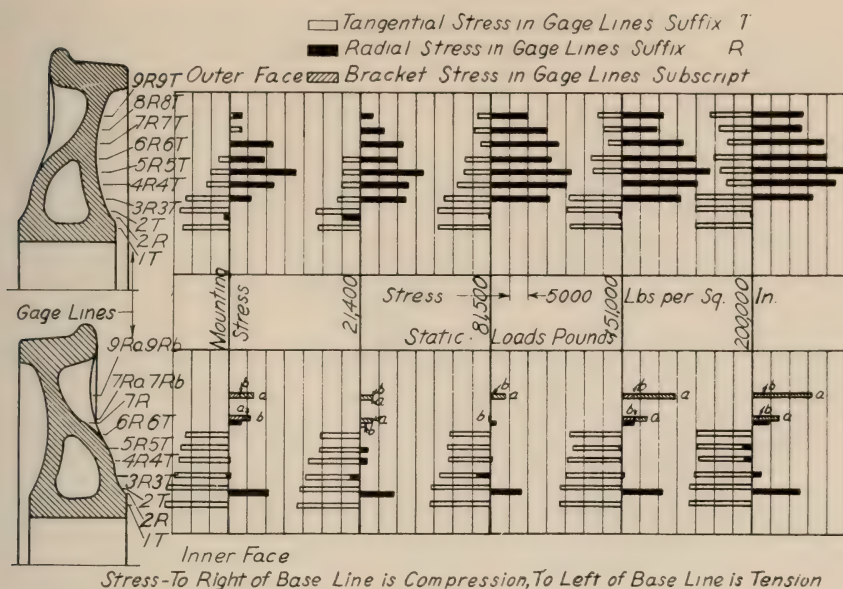 Tangential Stress in Gage Lines Suffix T
Radial Stress in Gage Lines Suffix R
Outer Face
Bracket Stress in Gage Lines Subscript
9R9T
8R8T
7R7T
6R6T
5R5T
4R4T
3R3T
2T
2R
1T
Gage Lines
Mounting
Stress
21,400
81,500
151,000
200,000
Stress 5000 Lbs per Sq. In.
Static Loads Pounds
9Ra9Rb
7Ra7Rb
7R
6R6T
5R5T
4R4T
3R3T
2T
2R
1T
b
a
a
b
b
a
a
b
b
a
b
b
a
b
a
b
a
b
a
Inner Face
Stress-To Right of Base Line is Compression, To Left of Base Line is Tension